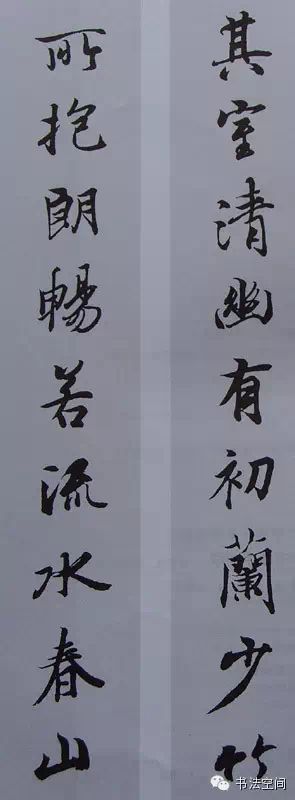 其室清幽有初蘭少竹
所抱朗暢若流水春山
书法空间